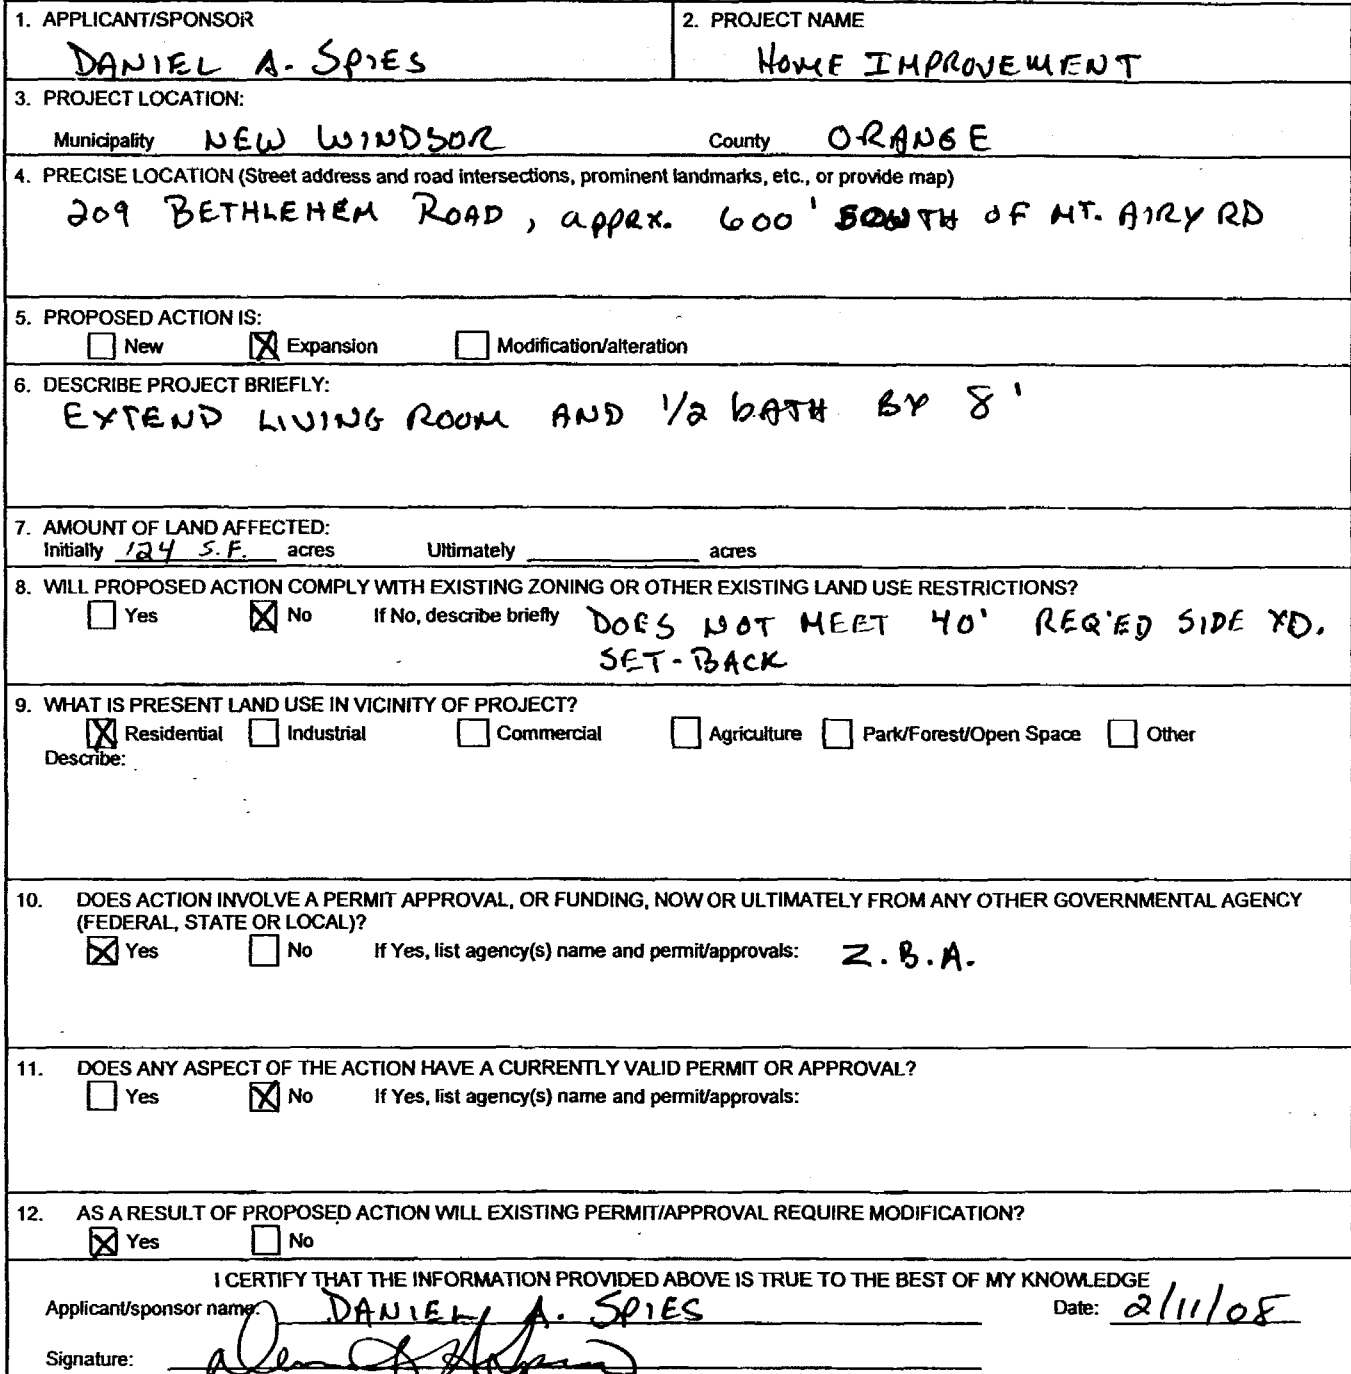 1. APPLICANT/SPONSOR
DANIEL A. SPIES
2. PROJECT NAME
HOME IMPROVEMENT
3. PROJECT LOCATION:
Municipality NEW WINDSOR County ORANGE
4. PRECISE LOCATION (Street address and road intersections, prominent landmarks, etc., or provide map)
209 BETHLEHEM ROAD, apprx. 600' SOUTH OF MT. AIRY RD
5. PROPOSED ACTION IS:
New Expansion Modification/alteration
6. DESCRIBE PROJECT BRIEFLY:
EXTEND LIVING ROOM AND 1/2 bATH BY 8'
7. AMOUNT OF LAND AFFECTED:
Initially 124 S.F. acres Ultimately acres
8. WILL PROPOSED ACTION COMPLY WITH EXISTING ZONING OR OTHER EXISTING LAND USE RESTRICTIONS?
Yes No If No, describe briefly DOES NOT MEET 40' REQ'ED SIDE YD.
SET-BACK
9. WHAT IS PRESENT LAND USE IN VICINITY OF PROJECT?
Residential Industrial Commercial Agriculture Park/Forest/Open Space Other
Describe:
10. DOES ACTION INVOLVE A PERMIT APPROVAL, OR FUNDING, NOW OR ULTIMATELY FROM ANY OTHER GOVERNMENTAL AGENCY
(FEDERAL, STATE OR LOCAL)?
Yes No If Yes, list agency(s) name and permit/approvals: Z.B.A.
11. DOES ANY ASPECT OF THE ACTION HAVE A CURRENTLY VALID PERMIT OR APPROVAL?
Yes No If Yes, list agency(s) name and permit/approvals:
12. AS A RESULT OF PROPOSED ACTION WILL EXISTING PERMIT/APPROVAL REQUIRE MODIFICATION?
Yes No
I CERTIFY THAT THE INFORMATION PROVIDED ABOVE IS TRUE TO THE BEST OF MY KNOWLEDGE
Applicant/sponsor name: DANIEL A. SPIES Date: 2/11/08
Signature: